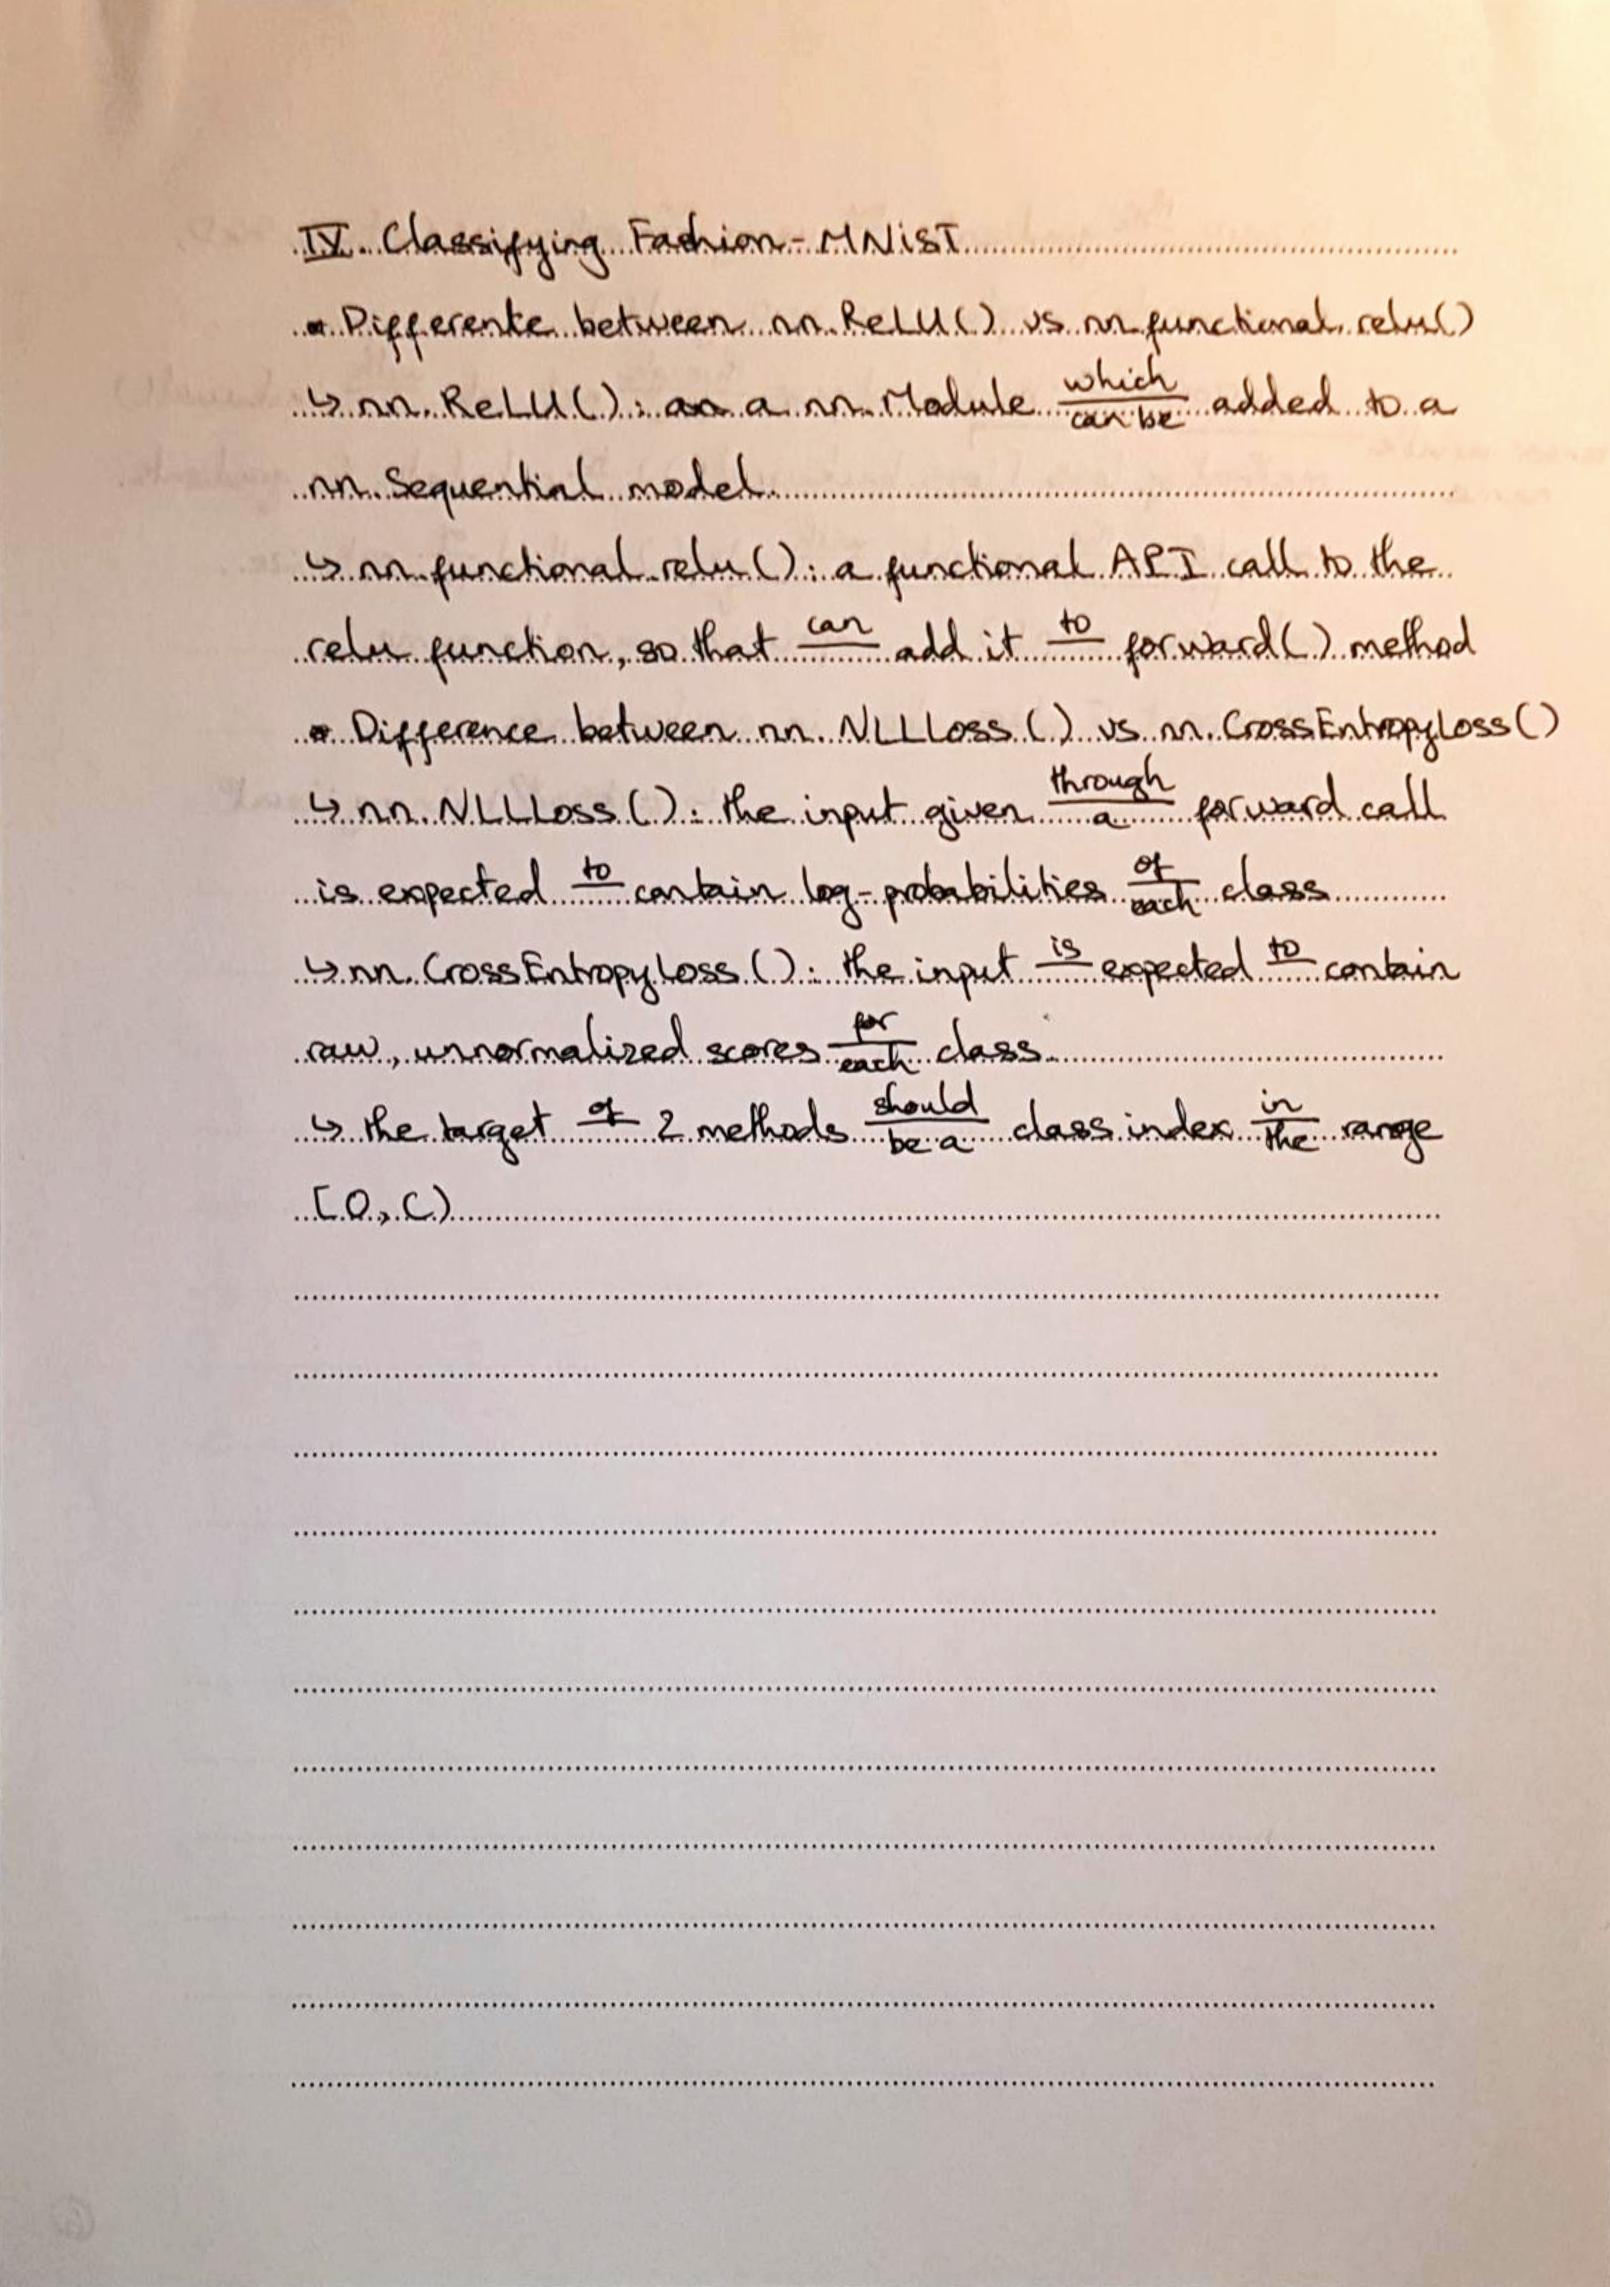 IV. Classifying Fashion-MNiST
• Differente between nn.ReLU() vs nn.functional.relu()
↳ nn.ReLU(): a nn.Module which can be added to a
nn.Sequential model.
↳ nn.functional.relu(): a functional API call to the
relu function, so that can add it to forward() method
• Difference between nn.NLLLoss() vs nn.CrossEntropyLoss()
↳ nn.NLLLoss(): the input given through a forward call
is expected to contain log-probabilities of each class
↳ nn.CrossEntropyLoss(): the input is expected to contain
raw, unnormalized scores for each class.
↳ the target of 2 methods should be a class index in the range
[0, C)